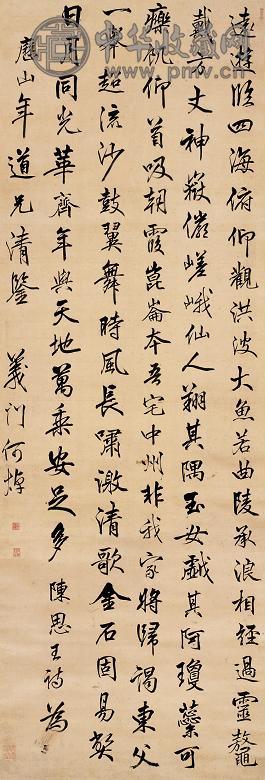 中华收藏网
www.pmv.cn
遠遊臨四海俯仰觀洪波大魚若曲陵承浪相經過靈鼇
戴方丈神嶽儼嵯峨仙人翔其隅玉女戲其阿瓊蘂可
療飢仰首吸朝霞崑崙本吾宅中州非我家將歸謁東父
一舉超流沙鼓翼舞時風長嘯激清歌金石固易弊
日月同光華齊年與天地萬乘安足多 陳思王詩為
山年道兄清鑒 義門何焯